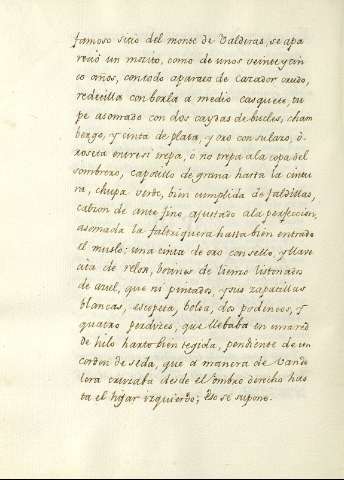 famoso sitio del monte de Valderas, se apa
reció un mozito, como de unos veinte y cin
co años, con todo aparato de Cazador crudo,
redecilla con borla a medio casquete, tu
pe asomado con dos caydas de bucles, cham
bergo, y cinta de plata, y oro con su lazo, ò
roseta entre si trepa, ò no trepa a la copa del
sombrero, capotillo de grana hasta la cintu
ra, chupa verde, bien cumplida de faldillas,
calzon de ante fino, ajustado a la perfeccion,
asomada la faltriquera hasta bien entrado
el muslo; una cinta de oro con sello, y llave
de relox, botines de lienzo listonados
de azul, que ni pintados, y sus zapatillas
blancas, escopeta, bolsa, dos podencos, y
quatro perdizes, que llebaba en una red
de hilo harto bien tegida, pendiente de un
cordon de seda, que a manera de vando
lera cruzaba desde el ombro derecho has
ta el hijar izquierdo; Eso se supone.